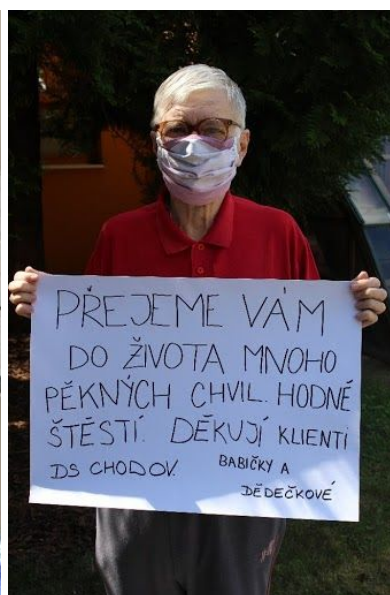 PŘEJEME VÁM
DO ŽIVOTA MNOHO
PĚKNÝCH CHVIL. HODNĚ
ŠTĚSTÍ. DĚKUJÍ KLIENTI
DS CHODOV. BABIČKY A
DĚDEČKOVÉ